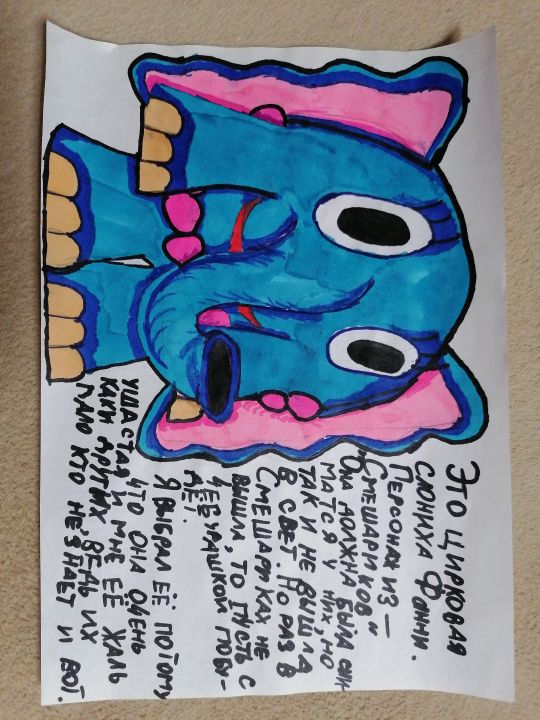 ЭТО ЦИРКОВАЯ
СЛОНИХА ФАННИ.
ПЕРСОНАЖ ИЗ —
"СМЕШАРИКОВ"
ОНА ДОЛЖНА БЫЛА СНИ-
МАТСЯ У НИХ, НО
ТАК И НЕ ВЫШЛА
В СВЕТ. НО РАЗ В
СМЕШАРИКАХ НЕ
ВЫШЛА, ТО ПУСТЬ С
ЧЕБУРАШКОЙ ПОБУ-
ДЕТ.
Я ВЫБРАЛ ЕЁ ПОТОМУ
ЧТО ОНА ОЧЕНЬ
УШАСТАЯ И МНЕ ЕЁ ЖАЛЬ
КАК И ДРУГИХ, ВЕДЬ ИХ
МАЛО КТО НЕ ЗНАЕТ И ВОТ.